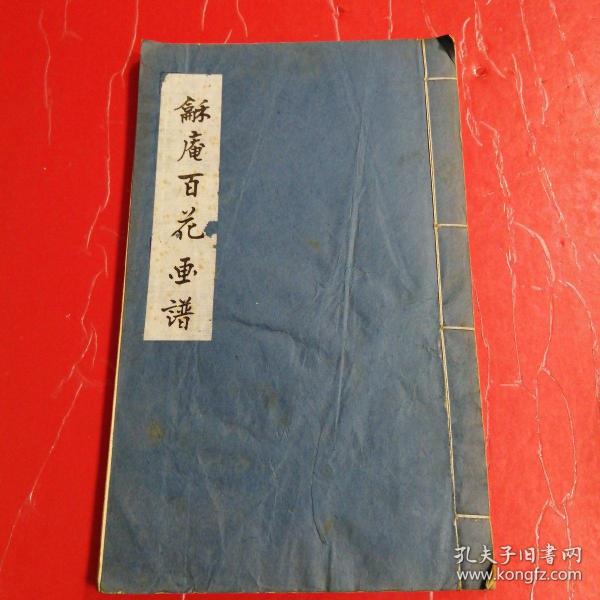 龢庵百花画譜
孔夫子旧书网
www.kongfz.com